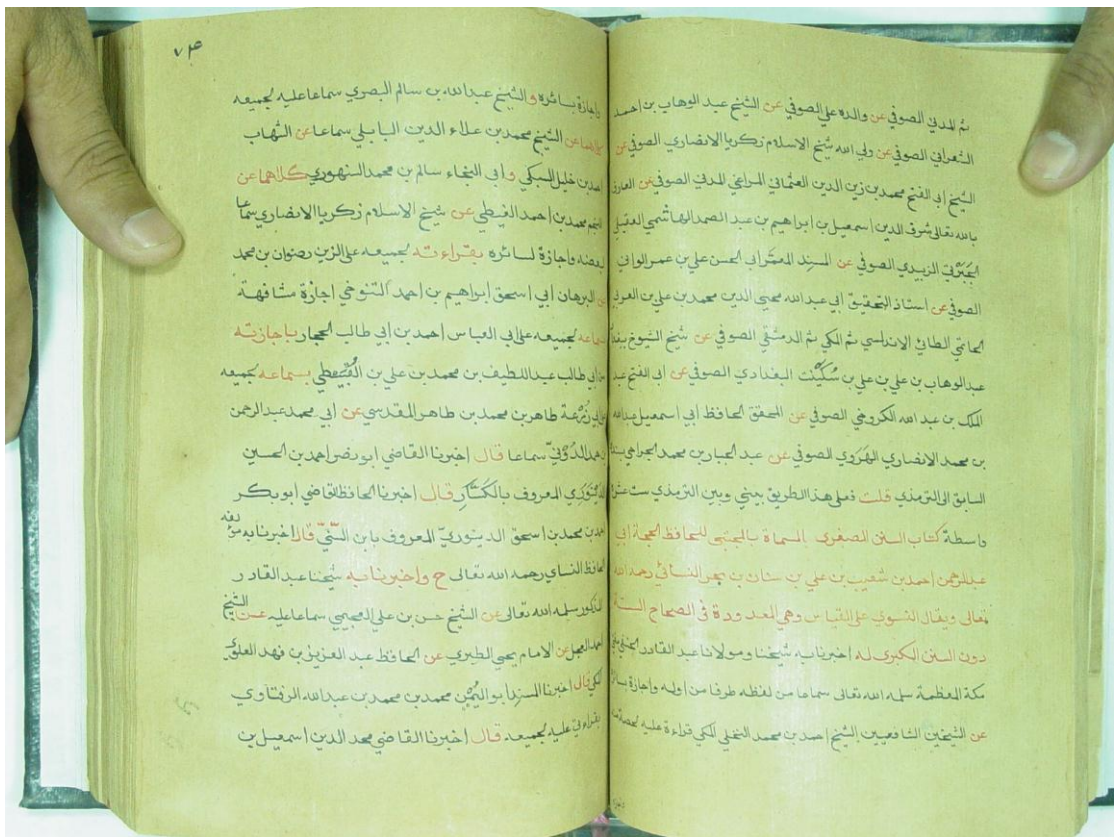 ثم المدني الصوفي عن والده علي الصوفي عن الشيخ عبد الوهاب بن احمد
الشعراني الصوفي عن ولي الله شيخ الاسلام زكريا الانصاري الصوفي عن
الشيخ ابي الفتح محمد بن زين الدين العثماني المراغي المدني الصوفي عن العارف
بالله تعالى شرف الدين اسمعيل بن ابراهيم بن عبد الصمد الهاشمي العقيلي
الجبرتي الزبيدي الصوفي عن المسند المعمر ابي الحسن علي بن عمر الواني
الصوفي عن استاذ التحقيق ابي عبد الله محيي الدين محمد بن علي بن العربي
الحاتمي الطائي الاندلسي ثم المكي ثم الدمشقي الصوفي عن شيخ الشيوخ
عبد الوهاب بن علي بن علي بن سكينة البغدادي الصوفي عن ابي الفتح عبد
الملك بن عبد الله الكروخي الصوفي عن المحقق الحافظ ابي اسمعيل عبد الله
بن محمد الانصاري الهروي الصوفي عن عبد الجبار بن محمد الجراحي
السابق الى الترمذي قلت فعلى هذا الطريق بيني وبين الترمذي ست عشرة
واسطة كتاب السنن الصغرى المسماة بالمجتبى للحافظ الحجة ابي
عبد الرحمن احمد بن شعيب بن علي بن سنان بن بحر النسائي رحمه الله
تعالى ويقال النسوي على القياس وهي المعدودة في الصحاح الستة
دون السنن الكبرى له اخبرنا به شيخنا ومولانا عبد القادر الحنفي مفتي
مكة المعظمة سلمه الله تعالى سماعا من لفظه طرفا من اوله واجازة بسائره
عن الشيخين الشافعيين الشيخ احمد بن محمد النخلي المكي قراءة عليه لحصة منه
٧٤
واجازة بسائره والشيخ عبد الله بن سالم البصري سماعا عليه لجميعه
كلاهما عن الشيخ محمد بن علاء الدين البابلي سماعا عن الشهاب
احمد بن خليل السبكي وابي النجاء سالم بن محمد السنهوري كلاهما عن
النجم محمد بن احمد الغيطي عن شيخ الاسلام زكريا الانصاري سماعا
لبعضه واجازة لسائره بقراءته لجميعه على الزين رضوان بن محمد
عن البرهان ابي اسحق ابراهيم بن احمد التنوخي اجازة مشافهة
بسماعه لجميعه على ابي العباس احمد بن ابي طالب الحجار باجازته
من ابي طالب عبد اللطيف بن محمد بن علي بن القبيطي بسماعه لجميعه
على ابي زرعة طاهر بن محمد بن طاهر المقدسي عن ابي محمد عبد الرحمن
بن حمد الدوني سماعا قال اخبرنا القاضي ابو نصر احمد بن الحسين
الدينوري المعروف بالكسار قال اخبرنا الحافظ القاضي ابو بكر
احمد بن محمد بن اسحق الدينوري المعروف بابن السني قال اخبرنا به مؤلفه
الحافظ النساي رحمه الله تعالى ح واخبرنا به شيخنا عبد القادر
المذكور سلمه الله تعالى عن الشيخ حسن بن علي العجيمي سماعا عليه عن الشيخ
احمد العجل عن الامام يحيى الطبري عن الحافظ عبد العزيز بن فهد العلوي
المكي قال اخبرنا المسند ابو اليمن محمد بن محمد بن عبد الله الزفتاوي
بقراءتي عليه لجميعه قال اخبرنا القاضي مجد الدين اسمعيل بن